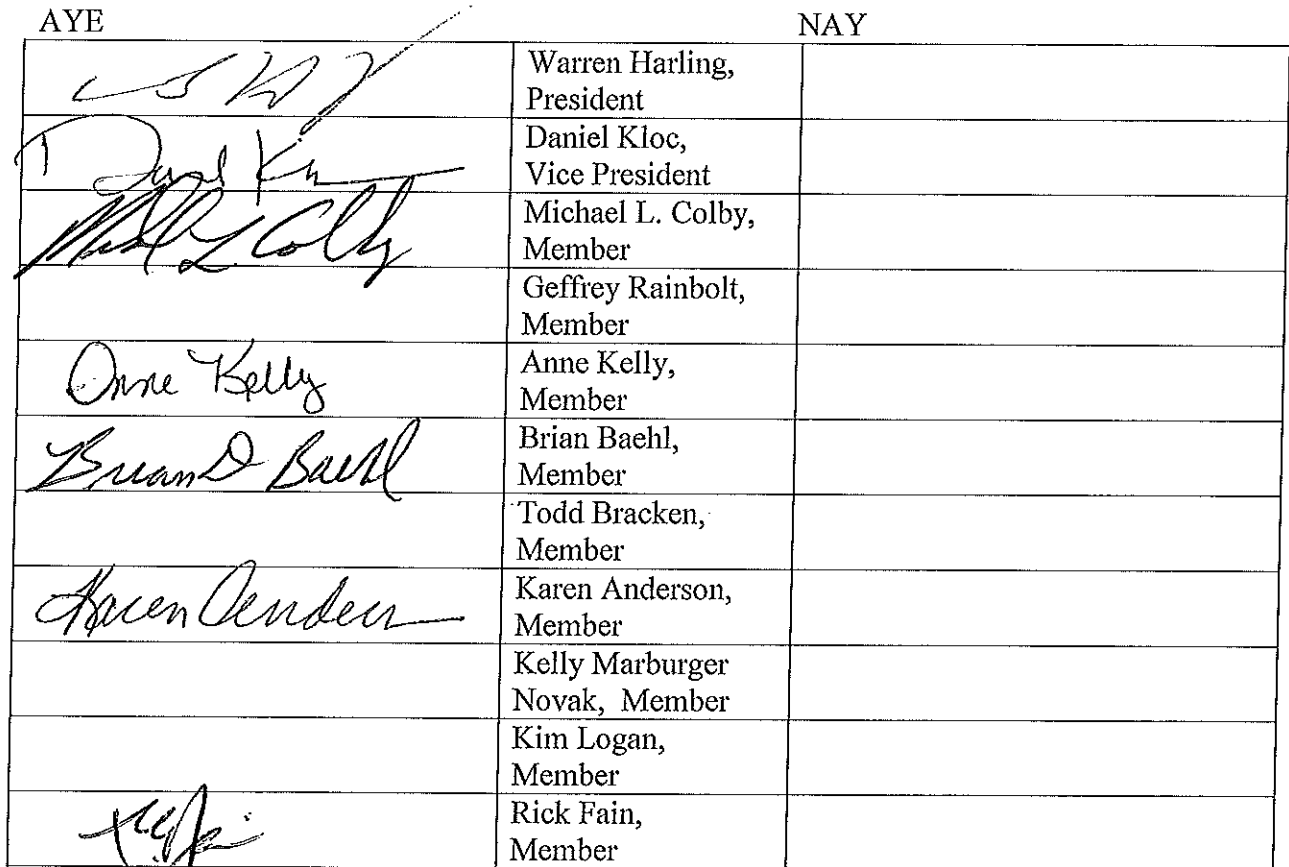 AYE NAY
Warren Harling,
President
Daniel Kloc,
Vice President
Michael L. Colby,
Member
Geffrey Rainbolt,
Member
Anne Kelly
Anne Kelly,
Member
Brian D Baehl
Brian Baehl,
Member
Todd Bracken,
Member
Karen Anderson
Karen Anderson,
Member
Kelly Marburger
Novak, Member
Kim Logan,
Member
Rick Fain,
Member